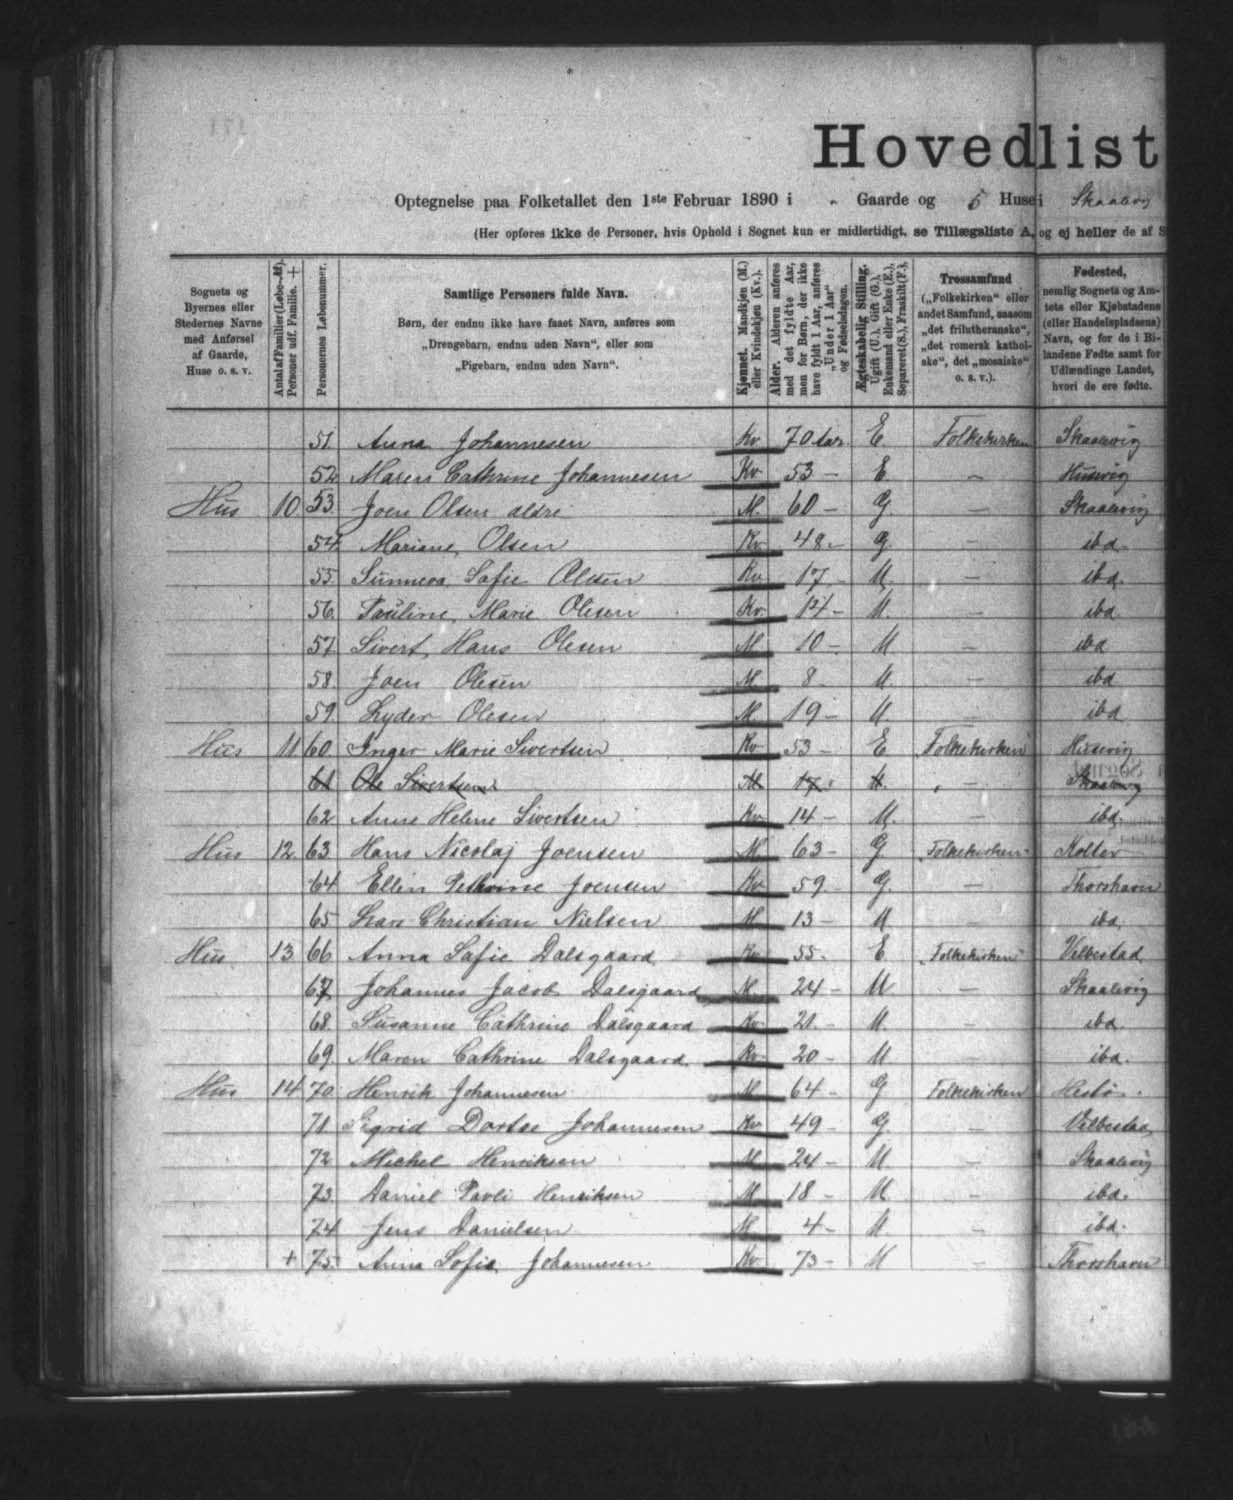 Hovedlist
Optegnelse paa Folketallet den 1ste Februar 1890 i " Gaarde og 5 Huse i Skaalevig
(Her opføres ikke de Personer, hvis Ophold i Sognet kun er midlertidigt, se Tillægsliste A, og ej heller de af S
Sognets og Byernes eller Stedernes Navne med Anførsel af Gaarde, Huse o. s. v.
Antal af Familier (Løbe-№). Personer udf. Familie. +
Personernes Løbenummer.
Samtlige Personers fulde Navn.
Børn, der endnu ikke have faaet Navn, anføres som
„Drengebarn, endnu uden Navn“, eller som
„Pigebarn, endnu uden Navn“.
Kjønnet. Mandkjøn (M.) eller Kvindekjøn (Kv.).
Alder. Alderen anføres med det fyldte Aar, men for Børn, der ikke have fyldt 1 Aar, anføres „Under 1 Aar“ og Fødselsdagen.
Ægteskabelig Stilling. Ugift (U.), Gift (G.), Enkemand eller Enke (E.), Separeret (S.), Fraskilt (F.).
Trossamfund („Folkekirken“ eller andet Samfund, saasom „det frilutheranske“, „det romersk katholske“, det „mosaiske“ o. s. v.).
Fødested, nemlig Sognets og Amtets eller Kjøbstadens (eller Handelspladsens) Navn, og for de i Bilandene Fødte samt for Udlændinge Landet, hvori de ere fødte.
51 Anna Johannesen Kv 70 Aar E Folkekirken Skaalevig
52 Maren Cathrine Johannesen Kv 53 – E – Husevig
Hus 10 53 Joen Olsen ældre M. 60 – G – Skaalevig
54 Mariane Olsen Kv 48 – G – ibd.
55 Sunneva Sofie Olsen Kv 17 – U – ibd.
56 Pauline Marie Olesen Kv 14 – U. – ibd
57 Sivert Hans Olesen M 10 – U – ibd
58 Joen Olesen M 8 U – ibd
59 Lyder Olesen M 19 – U. – ibd
Hus 11 60 Inger Marie Sivertsen Kv 53 – E „Folkekirken“ Husevig
61 Ole Sivertsen M 17 U. – Skaalevig
62 Anne Helene Sivertsen Kv 14 – U. ibd.
Hus 12 63 Hans Nicolaj Joensen M 63 – G „Folkekirken“ Kolter
64 Ellen Cathrine Joensen Kv 59 G – Thorshavn
65 Lars Christian Nielsen M 13 – U ibd
Hus 13 66 Anna Sofie Dalsgaard Kv 55 – E „Folkekirken“ Velbestad
67 Johannes Jacob Dalsgaard M 24 – U – Skaalevig
68 Susanne Cathrine Dalsgaard Kv 21 – U. – ibd
69 Maren Cathrine Dalsgaard Kv 20 – U – ibd.
Hus 14 70 Henrik Johannesen M 64 – G Folkekirken Hestø
71 Sigrid Dortea Johannesen Kv 49 – G – Velbestad
72 Michel Henriksen M 24 – U. – Skaalevig
73 Daniel Pavli Henriksen M 18 – U – ibd.
74 Jens Danielsen M 4 – U. – ibd.
+ 75 Anna Sofie Johannesen Kv 73 – U – Thorshavn